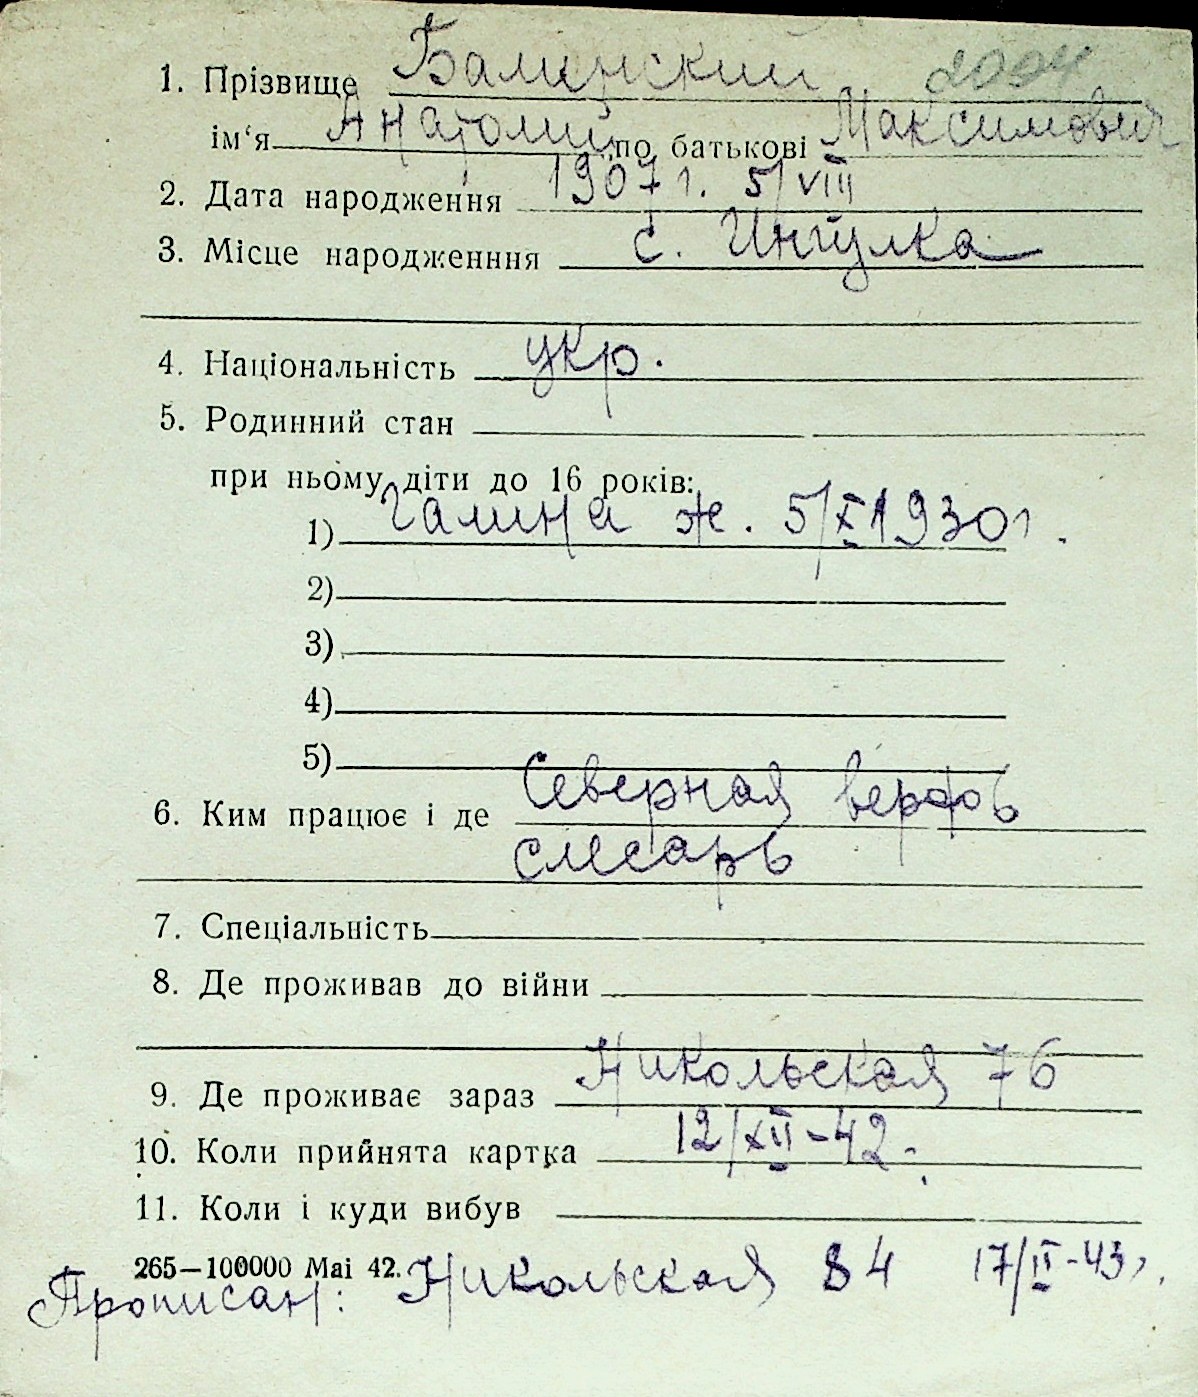 1. Прізвище Балинский 2094
ім‘я Анатолий по батькові Максимович
2. Дата народження 1907 г. 5/VIII
3. Місце народженння с. Ингулка
4. Національність укр.
5. Родинний стан
при ньому діти до 16 років:
1) Галина ж. 5/X 1930 г.
2)
3)
4)
5)
6. Ким працює і де Северная верфь
слесарь
7. Спеціальність
8. Де проживав до війни
9. Де проживає зараз Никольская 76
10. Коли прийнята картка 12/XII-42.
11. Коли і куди вибув
265—100000 Mai 42.
Прописан: Никольская 84 17/II-43г.